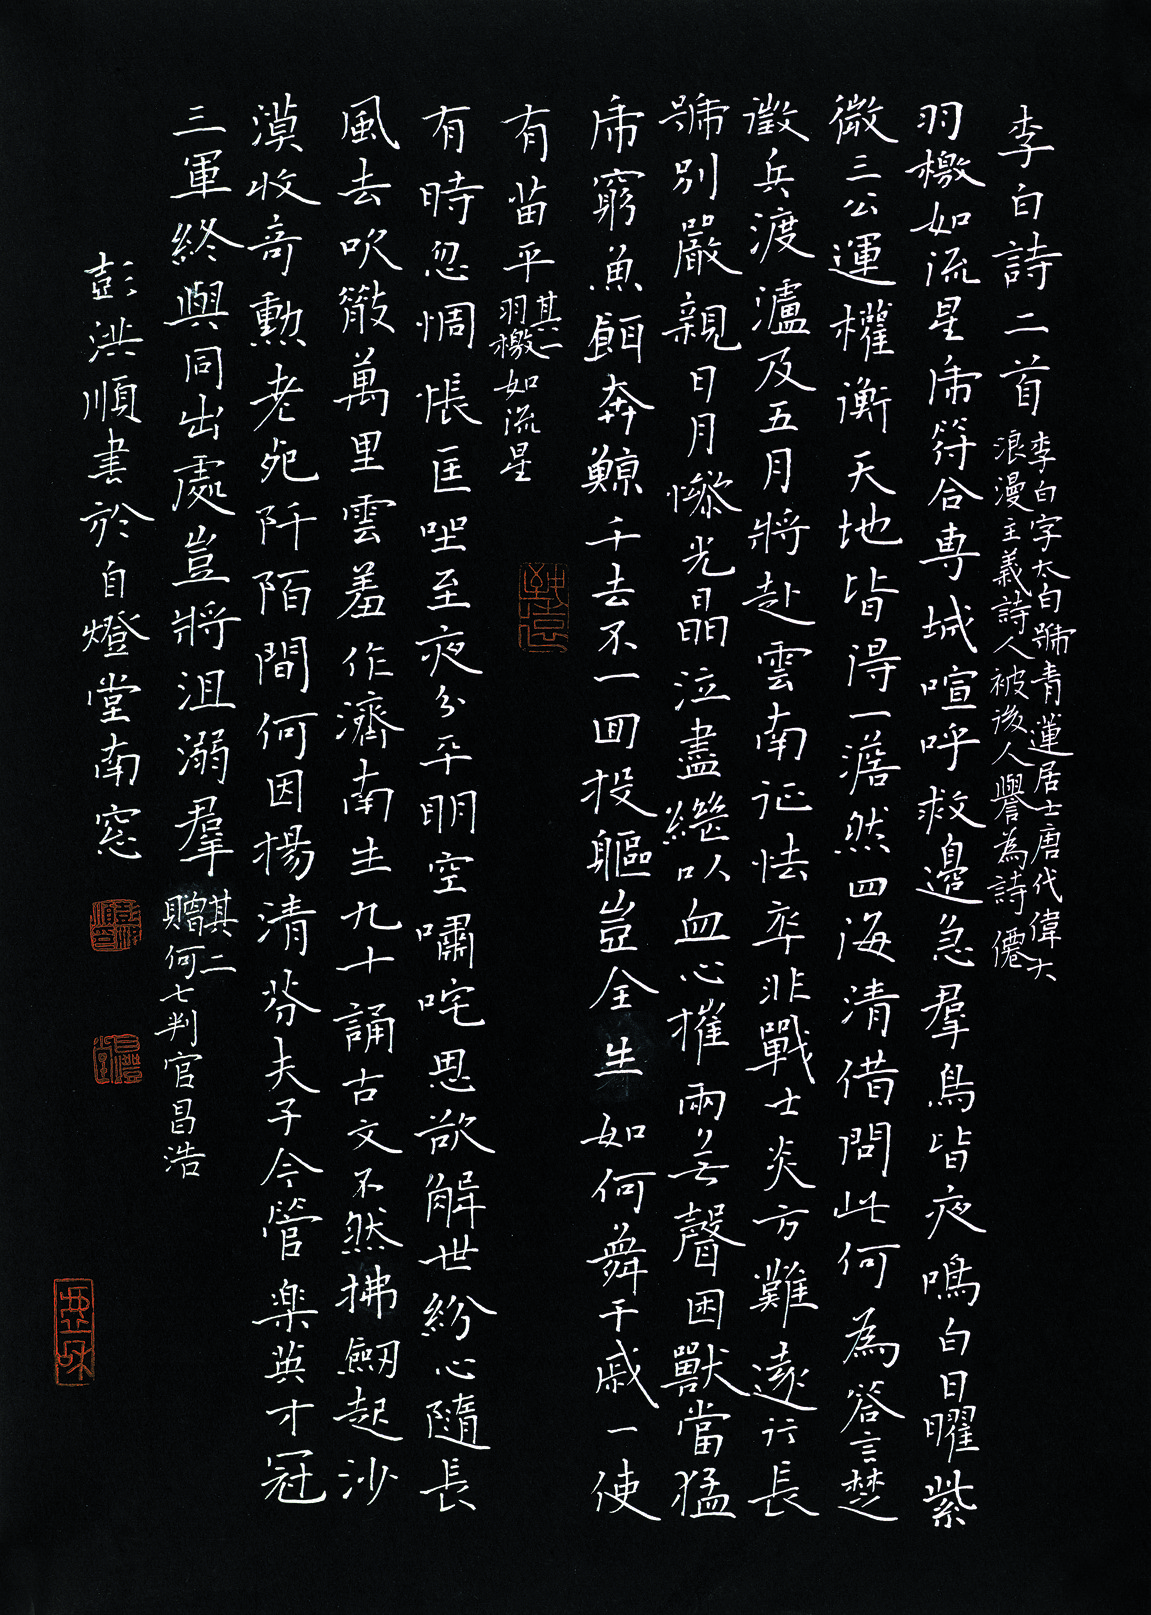 李白詩二首
李白字太白號青蓮居士唐代偉大
浪漫主義詩人被後人譽為詩僊
羽檄如流星席符合專城喧呼救邊急羣鳥皆夜鳴白日曜紫
微三公運權衡天地皆得一澹然四海清借問此何為答言楚
徵兵渡瀘及五月將赴雲南征怯卒非戰士炎方難遠行長
號別嚴親日月慘光晶泣盡繼以血心摧兩无聲困獸當猛
席窮魚餌奔鯨千去不一回投軀豈全生如何舞干戚一使
有苗平
其一
羽檄如流星
有時忽惆悵匡坐至夜分平明空嘯咤思欲解世紛心隨長
風去吹散萬里雲羞作濟南生九十誦古文不然拂劒起沙
漠收奇勳老死阡陌間何因揚清芬夫子今管樂英才冠
三軍終與同出處豈將沮溺羣
其二
贈何七判官昌浩
彭洪順書於自燈堂南窓